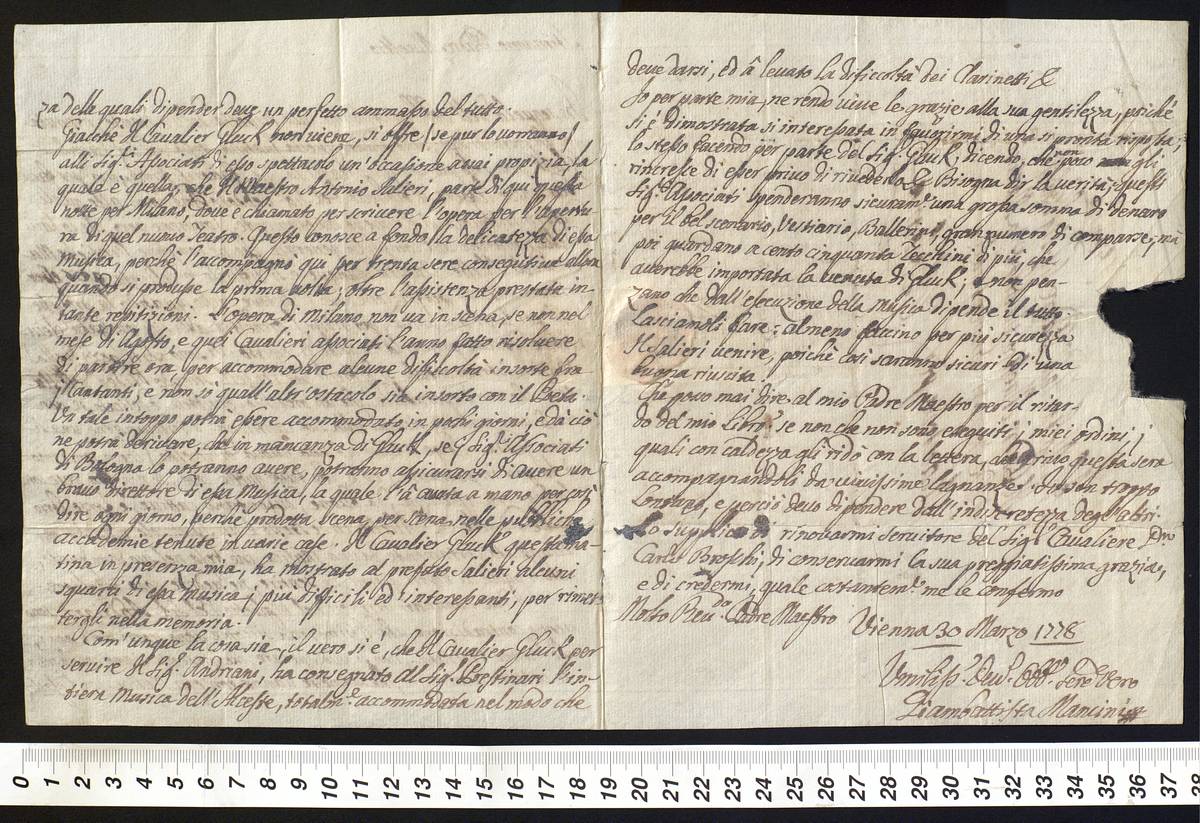 za delle quali dipender deve un perfetto ammasso del tutto.
Giacchè Il Cavalier Gluck non viene, si offre (se pur lo vorranno)
alli Sig.ri Associati di esso spettacolo un'occasione assai propizia, la
quale è quella, che Il Maestro Antonio Salieri, parte di qui questa
notte per Milano, dove è chiamato per scrivere l'opera per l'apertu-
ra di quel nuovo Teatro. Questo conosce a fondo la delicatezza di essa
musica, perchè l'accompagnò qui per trenta sere consecutive allora
quando si produsse la prima volta; oltre l'assistenza prestata in
tante repetizioni. L'opera di Milano non va in scena, se non nel
mese di Agosto, e quei Cavalieri associati l'anno fatto risolvere
di partire ora, per accommodare alcune difficoltà insorte fra
i Cantanti, e non sò quall'altr'ostacolo sia insorto con il Poeta.
Un tale intoppo potrà essere accommodato in pochi giorni, e da ciò
ne potrà derivare, che in mancanza di Gluck, se i Sig.ri Associati
di Bologna lo potranno avere, potranno assicurarsi di avere un
bravo direttore di essa Musica, la quale l'à avuta a mano per così
dire ogni giorno, perchè prodotta scena, per scena nelle publiche
accademie tenute in varie case. Il Cavalier Gluck questa ma-
tina in presenza mia, ha mostrato al prefato Salieri alcuni
squarci di essa musica i più difficili ed interessanti, per rimet-
tergli nella memoria.
Com'unque la cosa sia, il vero si è, che Il Cavalier Gluck per
servire Il Sig.r Andriani, ha consegnato al Sig.r Prestinari l'in-
tiera Musica dell'Alceste, totalm.e accommodata nel modo che
deve darsi, ed à levato la difficoltà dei Clarinetti &
Io per parte mia, ne rendo vive le grazie alla sua gentilezza, poichè
si è dimostrata sì interessata in favorirmi di una sì pronta risposta;
lo stesso facendo per parte del Sig.r Gluck, dicendo, che non poco gli
rincresce di esser privo di rivederla & Bisogna dir la verità; questi
Sig.ri Associati spenderanno sicuram.e una grossa somma di denaro
per il del scenario, Vestiario, Ballerini, gran numero di comparse, mà
poi guardano a cento cinquanta Zecchini di più, che
averebbe importata la venuta di Gluck; e non pen-
zano che dall'esecuzione della Musica dipende il tutto.
Lasciamoli fare: almeno faccino per più sicurezza
Il Salieri venire, poichè così saranno sicuri di una
buona riuscita.
Che posso mai dire al mio Padre Maestro per il ritar-
do del mio Libro? se non che non sono eseguiti i miei ordini, i
quali con caldezza gli ridò con la lettera, che scrivo questa sera
accompagnandoli da vivissime lagnanze. Io son troppo
lontano, e perciò devo dipendere dall'indiscretezza degl'altri.
Lo supplico di rinovarmi servitore del Sig.r Cavaliere
Carlo Broschi, di conservarmi la sua pregiatissima grazia,
e di credermi, quale costantem.e me le confermo
Molto Rev.do Padre Maestro Vienna 30 Marzo 1778
Umiliss.o Dev.o Obb.mo Ser.e Vero
Giambattista Mancini
0 1 2 3 4 5 6 7 8 9 10 11 12 13 14 15 16 17 18 19 20 21 22 23 24 25 26 27 28 29 30 31 32 33 34 35 36 37 38